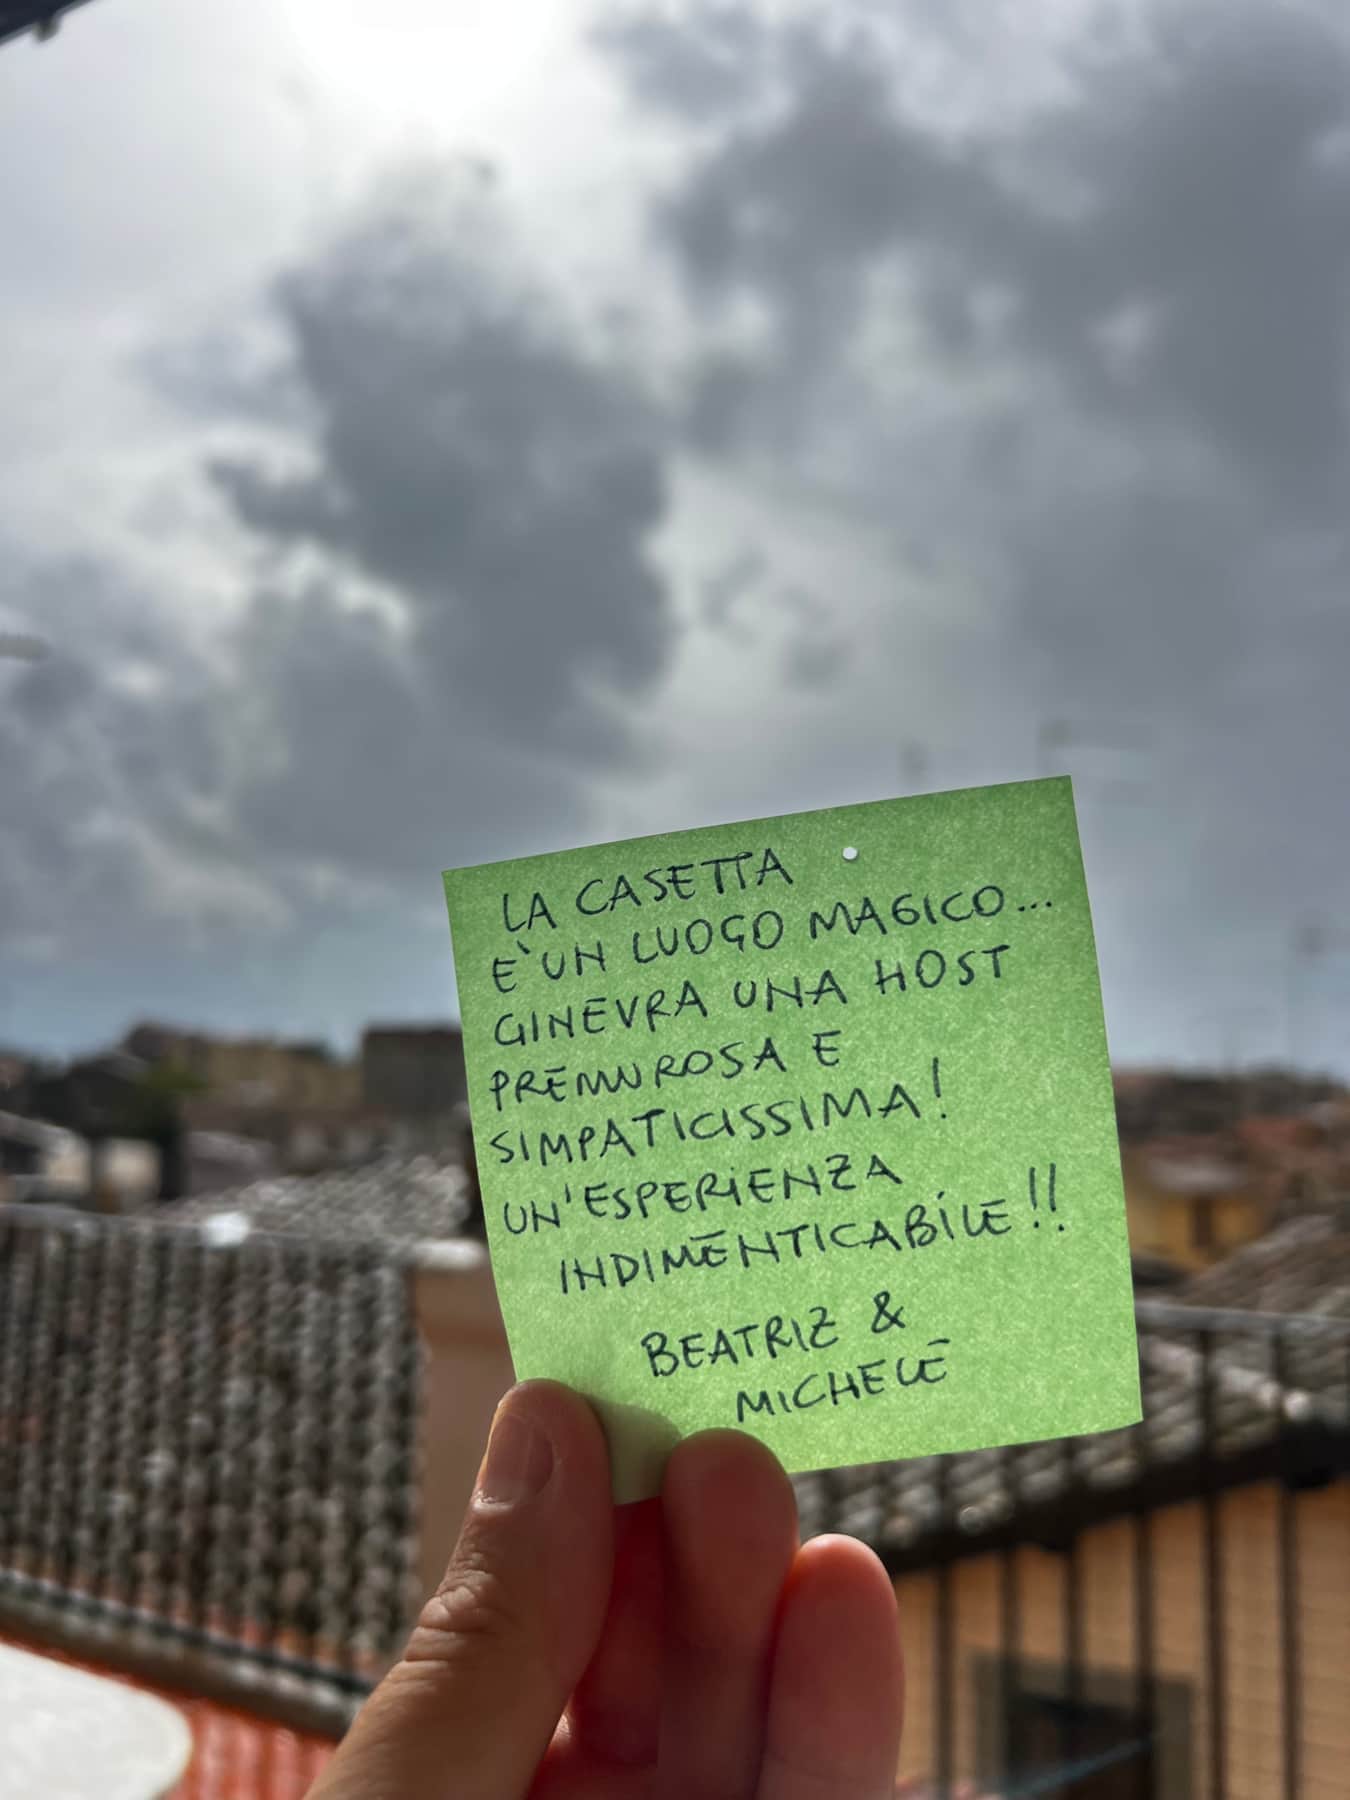 LA CASETTA
E' UN LUOGO MAGICO...
GINEVRA UNA HOST
PREMUROSA E
SIMPATICISSIMA!
UN'ESPERIENZA
INDIMENTICABILE!!
BEATRIZ &
MICHELE